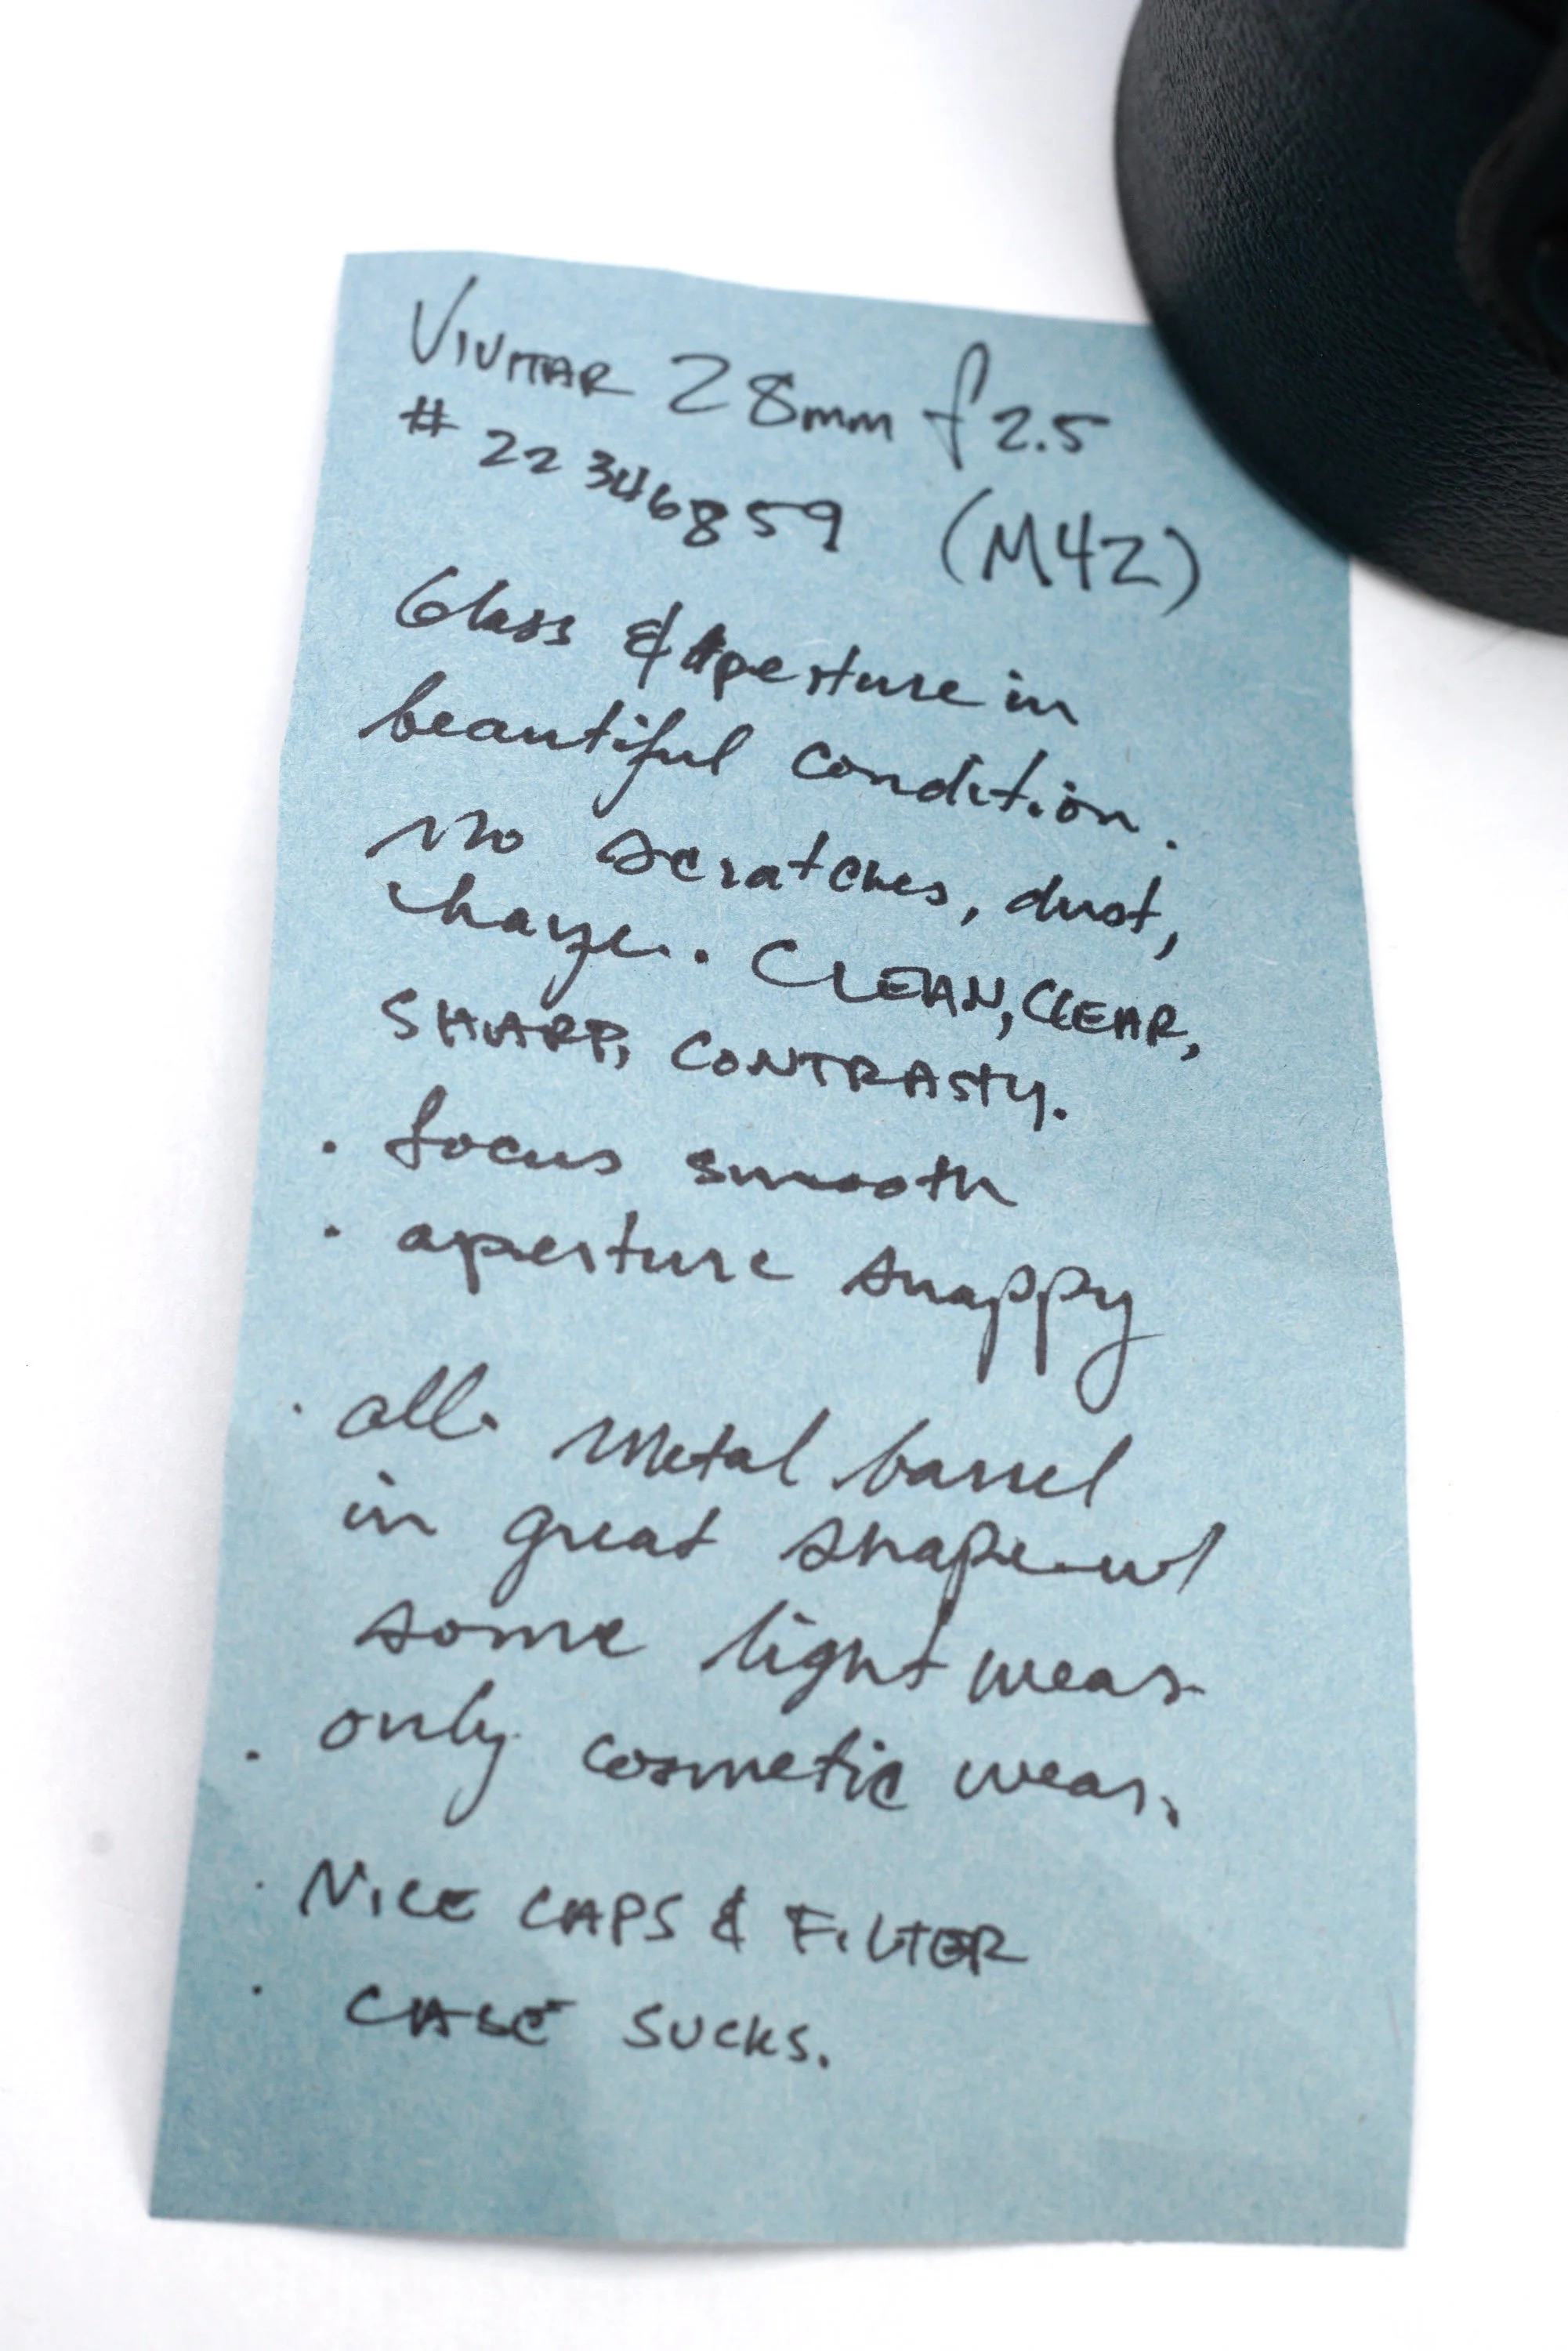 VIVITAR 28mm f2.5
# 22346859 (M42)
Glass & Aperture in
beautiful condition.
no scratches, dust,
haze. CLEAN, CLEAR,
SHARP, CONTRASTY.
· focus smooth
· aperture snappy
· all metal barrel
in great shape w/
some light wear
· only cosmetic wear.
· NICE CAPS & FILTER
· CASE SUCKS.